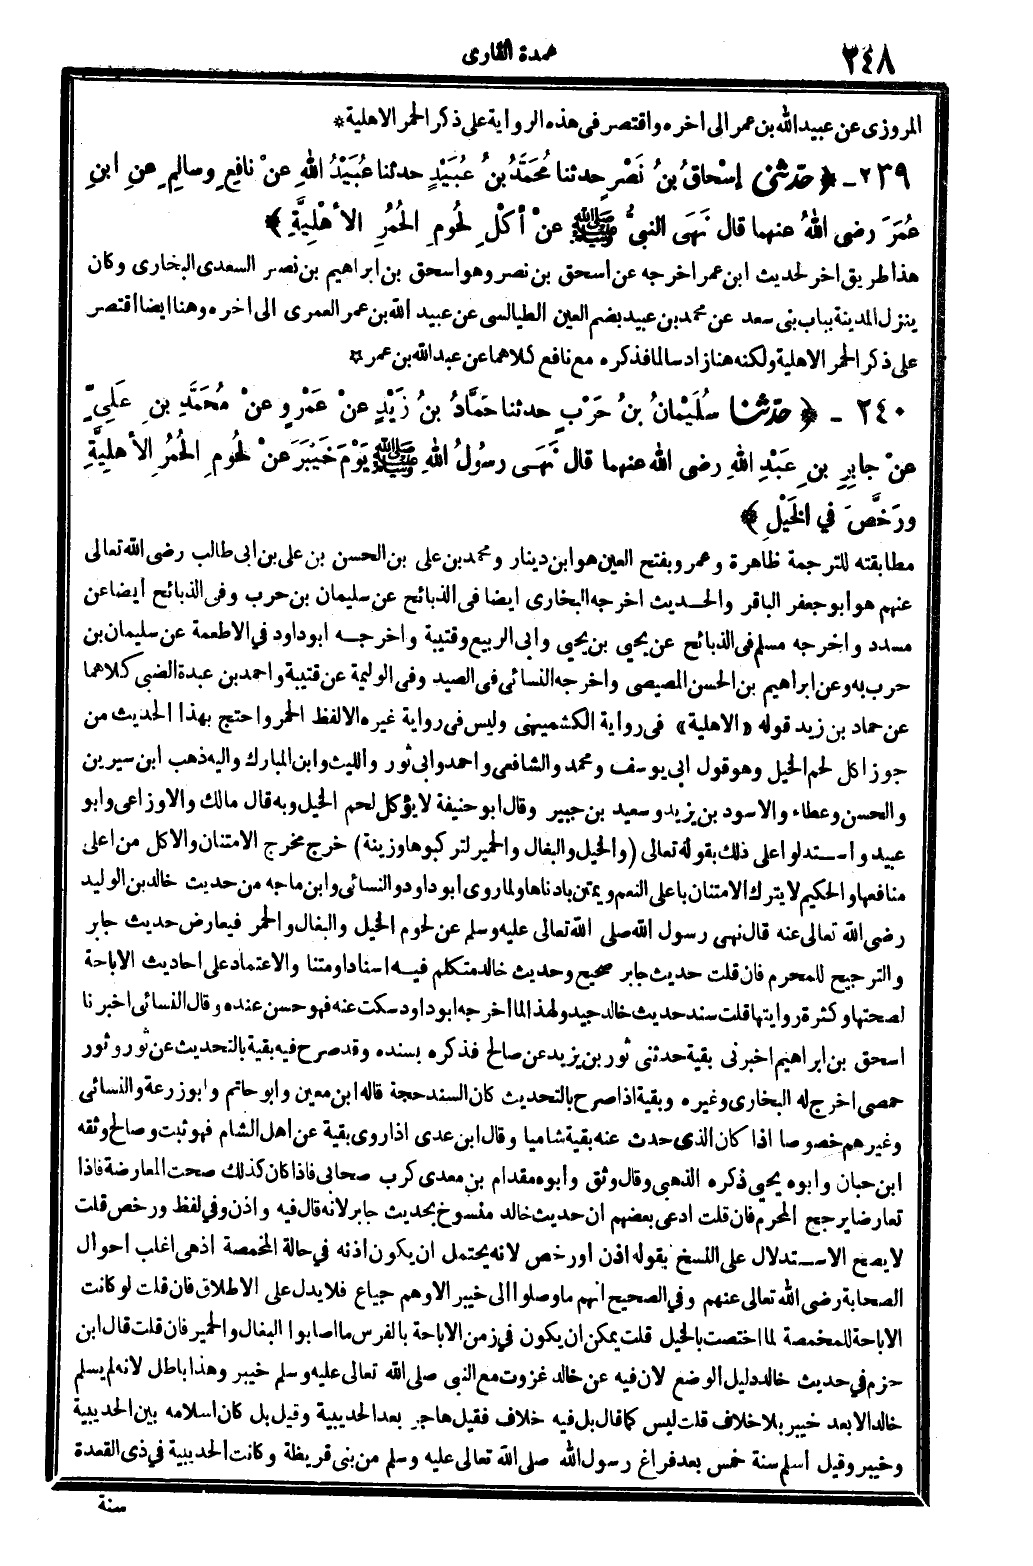 ٢٤٨
عمدة القارى
المروزى عن عبيد الله بن عمر الى آخره واقتصر فى هذه الرواية على ذكر الحمر الاهلية *
٢٣٩ - ﴿ حَدَّثَنِى إسْحَاقُ بنُ نَصْرٍ حدثنا مُحَمَّدُ بنُ عُبَيْدٍ حدثنا عُبَيْدُ اللهِ عنْ نافِعٍ وسالِمٍ عنِ ابنِ
عُمَرَ رضى اللهُ عنهما قال نَهَى النبىُّ ﷺ عنْ أكْلِ لُحومِ الحُمُرِ الأهْلِيَّةِ ﴾
هذا طريق آخر لحديث ابن عمر اخرجه عن اسحق بن نصر وهو اسحق بن ابراهيم بن نصر السعدى البخارى وكان
ينزل المدينة بباب بنى سعد عن محمد بن عبيد بضم العين الطيالسى عن عبيد الله بن عمر العمرى الى آخره وهنا ايضا اقتصر
على ذكر الحمر الاهلية ولكنه هنا زاد سالما فذكره مع نافع كلاهما عن عبد الله بن عمر *
٢٤٠ - ﴿ حدّثنا سُلَيْمانُ بنُ حَرْبٍ حدثنا حَمَّادُ بنُ زَيْدٍ عنْ عَمْرٍو عنْ مُحَمَّدِ بنِ عَلِيٍّ
عنْ جابِرِ بنِ عَبْدِ اللهِ رضى الله عنهما قال نَهَى رسولُ اللهِ ﷺ يَوْمَ خَيْبَرَ عنْ لُحومِ الحُمُرِ الأهْلِيَّةِ
ورَخَّصَ فى الخَيْلِ ﴾
مطابقته للترجمة ظاهرة وعمرو بفتح العين هو ابن دينار ومحمد بن على بن الحسن بن على بن ابى طالب رضى الله تعالى
عنهم هو ابو جعفر الباقر والحديث اخرجه البخارى ايضا فى الذبائح عن سليمان بن حرب وفى الذبائح أيضا عن
مسدد واخرجه مسلم فى الذبائح عن يحيى بن يحيى وابى الربيع وقتيبة واخرجه ابو داود فى الاطعمة عن سليمان بن
حرب به وعن ابراهيم بن الحسن المصيصى واخرجه النسائى فى الصيد وفى الوليمة عن قتيبة واحمد بن عبدة الضبى كلاهما
عن حماد بن زيد قوله «الاهلية» فى رواية الكشميهنى وليس فى رواية غيره الا لفظ الحمر واحتج بهذا الحديث من
جوز اكل لحم الخيل وهو قول ابى يوسف ومحمد والشافعى واحمد وابى ثور والليث وابن المبارك واليه ذهب ابن سيرين
والحسن وعطاء والاسود بن يزيد وسعيد بن جبير وقال ابو حنيفة لا يؤكل لحم الخيل وبه قال مالك والاوزاعى وابو
عبيد واستدلوا على ذلك بقوله تعالى (والخيل والبغال والحمير لتركبوها وزينة) خرج مخرج الامتنان والاكل من اعلى
منافعها والحكيم لا يترك الامتنان باعلى النعم ويمتن بادناها ولما روى ابو داود والنسائى وابن ماجه من حديث خالد بن الوليد
رضى الله تعالى عنه قال نهى رسول الله صلى الله تعالى عليه وسلم عن لحوم الخيل والبغال والحمر فيعارض حديث جابر
والترجيح للمحرم فان قلت حديث جابر صحيح وحديث خالد متكلم فيه اسنادا ومتنا والاعتماد على احاديث الاباحة
لصحتها وكثرة روايتها قلت سند حديث خالد جيد ولهذا لما اخرجه ابو داود سكت عنه فهو حسن عنده وقال النسائى اخبرنا
اسحق بن ابراهيم اخبرنى بقية حدثنى ثور بن يزيد عن صالح فذكره بسنده وقد صرح فيه بقية بالتحديث عن ثور وثور
حمصى اخرج له البخارى وغيره وبقية اذا صرح بالتحديث كان السند حجة قاله ابن معين وابو حاتم وابو زرعة والنسائى
وغيرهم خصوصا اذا كان الذى حدث عنه بقية شاميا وقال ابن عدى اذا روى بقية عن اهل الشام فهو ثبت وصالح وثقه
ابن حبان وابوه يحيى ذكره الذهبى وقال وثق وأبوه مقدام بن معدى كرب صحابى فاذا كان كذلك صحت المعارضة فاذا
تعارضا يرجح المحرم فان قلت ادعى بعضهم ان حديث خالد منسوخ بحديث جابر لانه قال فيه واذن وفى لفظ ورخص قلت
لا يصح الاستدلال على النسخ بقوله اذن او رخص لانه يحتمل ان يكون اذنه فى حالة المخمصة اذ هى اغلب احوال
الصحابة رضى الله تعالى عنهم وفى الصحيح انهم ما وصلوا الى خيبر الا وهم جياع فلا يدل على الاطلاق فان قلت لو كانت
الاباحة للمخمصة لما اختصت بالخيل قلت يمكن ان يكون فى زمن الاباحة بالفرس ما اصابوا البغال والحمير فان قلت قال ابن
حزم فى حديث خالد دليل الوضع لان فيه عن خالد غزوت مع النبى صلى الله تعالى عليه وسلم خيبر وهذا باطل لانه لم يسلم
خالد الا بعد خيبر بلا خلاف قلت ليس كما قال بل فيه خلاف فقيل هاجر بعد الحديبية وقيل بل كان اسلامه بين الحديبية
وخيبر وقيل أسلم سنة خمس بعد فراغ رسول الله صلى الله تعالى عليه وسلم من بنى قريظة وكانت الحديبية فى ذى القعدة
سنة